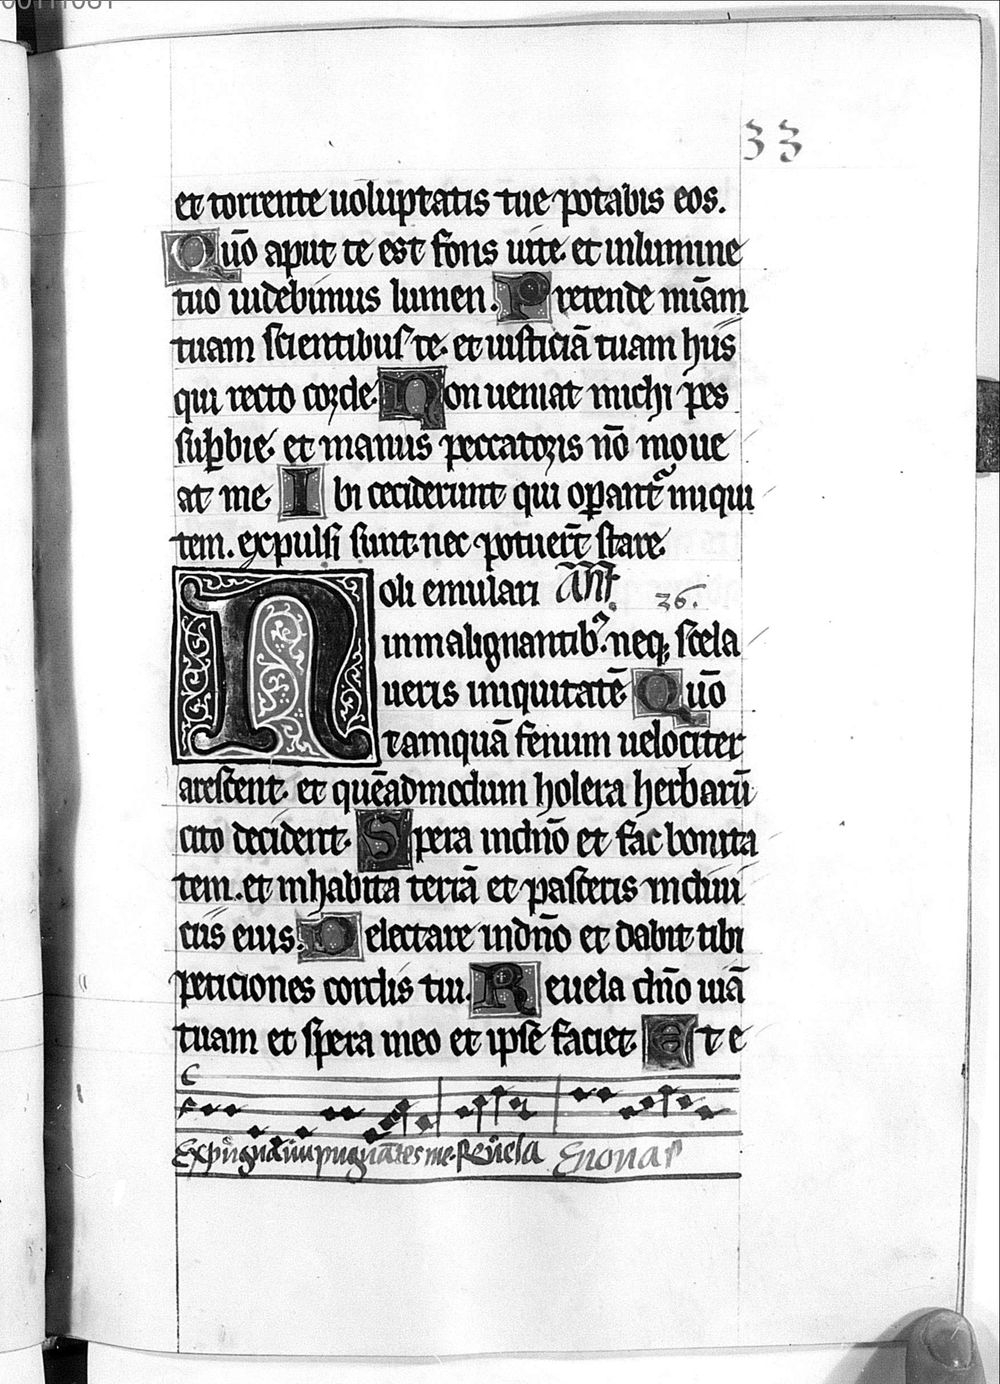 33
et torrente uoluptatis tue potabis eos.
Quō aput te est fons uite. et inlumine
tuo uidebimus lumen. Pretende mīam
tuam scientibus te. et iusticiā tuam hiis
qui recto corde. Non ueniat michi pes
sup̱bie. et manus peccatoris nō moue
at me. Ibi ceciderunt qui op̱ant᷑ iniqui
tem. expulsi sunt. nec potuer̄t stare.
Noli emulari Añt. 36.
in malignantibꝰ. neqꝫ scela
ueris iniquitatē. Quō
tamquā fenum uelociter
arescent. et quēadmodum holera herbarū
cito decident. Spera in dño et fac bonita
tem. et inhabita terrā et pasceris in diui
ciis eius. Delectare in dño et dabit tibi
peticiones cordis tui. Reuela dño uiā
tuam et spera in eo et ipse faciet. Et e
Expugna inpugnātes me. Reuela Enouae